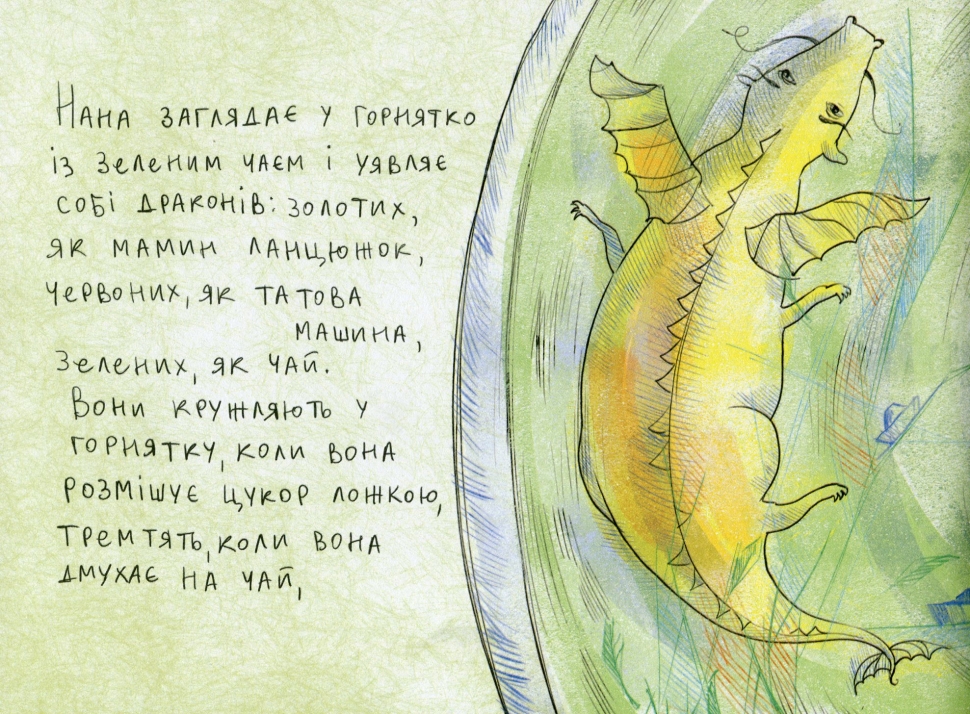 Нана заглядає у горнятко
із зеленим чаєм і уявляє
собі драконів: золотих,
як мамин ланцюжок,
червоних, як татова
машина,
зелених, як чай.
Вони кружляють у
горнятку, коли вона
розмішує цукор ложкою,
тремтять, коли вона
дмухає на чай,